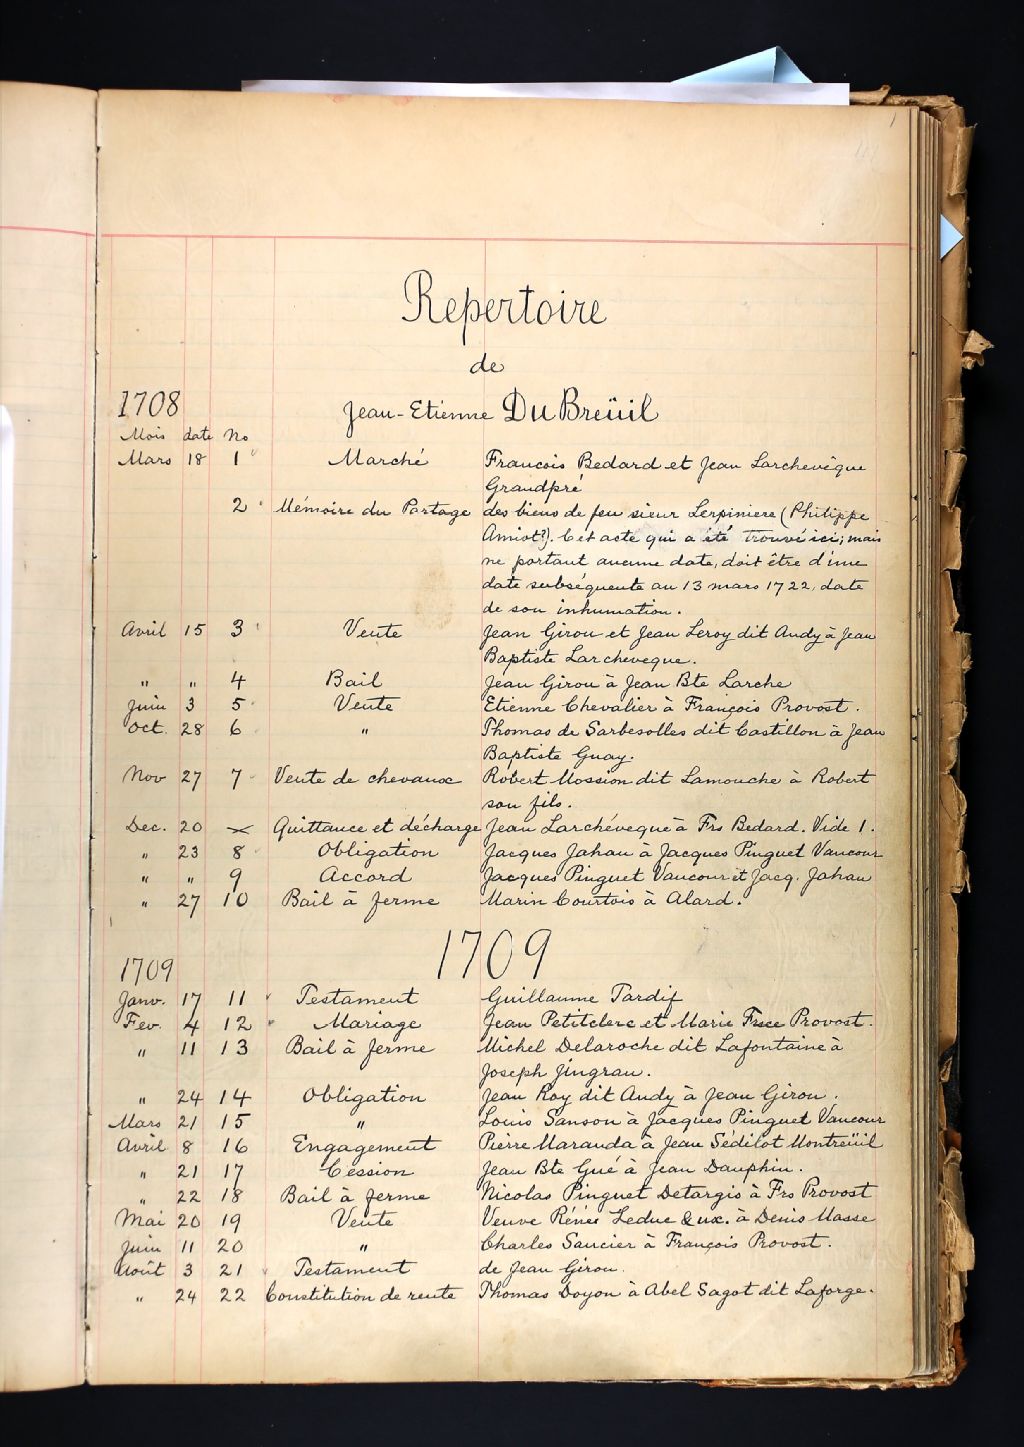 Repertoire
de
1708
Jean-Etienne DuBreüil
Mois date No
Mars 18 1 Marché Francois Bedard et Jean Larchevêque
Grandpré
2 Mémoire du Partage des biens de feu sieur Lerpiniere (Philippe
Amiot?). Cet acte qui a été trouvé ici; mais
ne portant aucune date, doit être d'une
date subséquente au 13 mars 1722, date
de son inhumation.
Avril 15 3 Vente Jean Girou et Jean Leroy dit Audy à Jean
Baptiste Larcheveque.
" " 4 Bail Jean Girou à Jean Bte Larche
Juin 3 5 Vente Etienne Chevalier à François Provost.
Oct. 28 6 " Thomas de Sarbesolles dit Castillon à Jean
Baptiste Guay.
Nov 27 7 Vente de chevaux Robert Mossion dit Lamouche à Robert
son fils.
Dec. 20 Quittance et décharge Jean Larchévequé à Frs Bedard. Vide 1.
" 23 8 Obligation Jacques Jahan à Jacques Pinguet Vaucour
" " 9 Accord Jacques Pinguet Vaucour et Jacq. Jahan
" 27 10 Bail à ferme Marin Courtois à Alard.
1709
1709
Janv. 17 11 Testament Guillaume Tardif
Fev. 4 12 Mariage Jean Petitclerc et Marie Frsce Provost.
" 11 13 Bail à ferme Michel Delaroche dit Lafontaine à
Joseph Jingrau.
" 24 14 Obligation Jean Roy dit Audy à Jean Girou.
Mars 21 15 " Louis Sanson à Jacques Pinguet Vaucour
Avril 8 16 Engagement Pierre Maranda à Jean Sédilot Montreüil
" 21 17 Cession Jean Bte Gué à Jean Dauphin.
" 22 18 Bail à ferme Nicolas Pinguet Detargis à Frs Provost
Mai 20 19 Vente Veuve Rénée Leduc & ux. à Denis Masse
Juin 11 20 " Charles Saucier à François Provost.
Août 3 21 Testament de Jean Girou.
" 24 22 Constitution de rente Thomas Doyon à Abel Sagot dit Laforge.